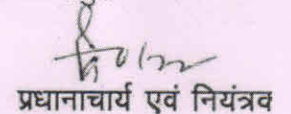 प्रधानाचार्य एवं नियंत्रव